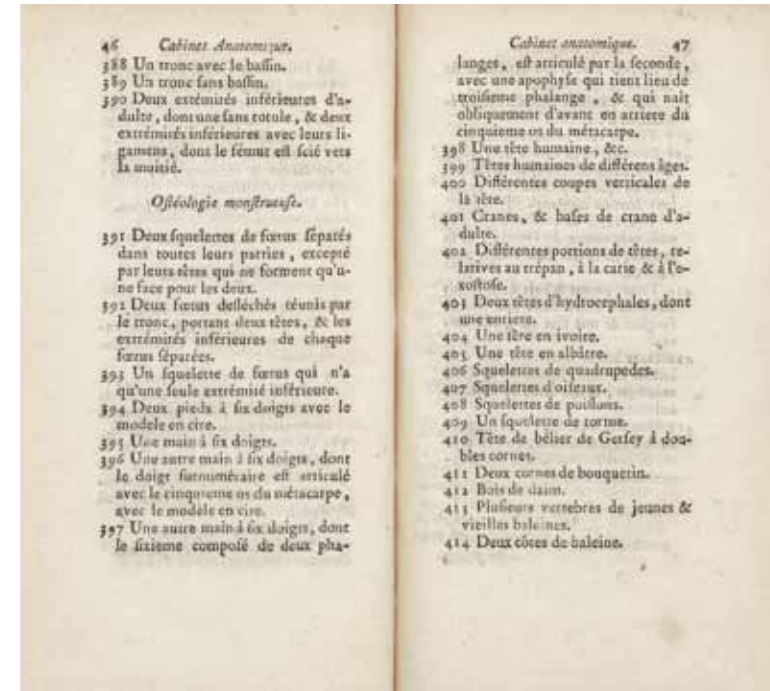 46 Cabinet Anatomique.
388 Un tronc avec le bassin.
389 Un tronc sans bassin.
390 Deux extémités inférieures d'a-
dulte, dont une sans rotule, & deux
extrémités inférieures avec leurs li-
gamens, dont le fémur est scié vers
la moitié.
Ostéologie monstrueuse.
391 Deux squelettes de fœtus séparés
dans toutes leurs parties, excepté
par leurs têtes qui ne forment qu'u-
ne face pour les deux.
392 Deux fœtus desséchés réunis par
le tronc, portant deux têtes, & les
extrémités inférieures de chaque
fœtus séparées.
393 Un squelette de fœtus qui n'a
qu'une seule extrémité inférieure.
394 Deux pieds à six doigts avec le
modele en cire.
395 Une main à six doigts.
396 Une autre main à six doigts, dont
le doigt surnuméraire est articulé
avec le cinquieme os du métacarpe,
avec le modele en cire.
397 Une autre main à six doigts, dont
le sixieme composé de deux pha-
Cabinet anatomique. 47
langes, est articulé par la seconde,
avec une apophyse qui tient lieu de
troisieme phalange, & qui nait
obliquement d'avant en arriere du
cinquieme os du métacarpe.
398 Une tête humaine, &c.
399 Têtes humaines de différens âges.
400 Différentes coupes verticales de
la tête.
401 Cranes, & bases de crane d'a-
dulte.
402 Différentes portions de têtes, re-
latives au trépan, à la carie & à l'e-
xostose.
403 Deux têtes d'hydrocephales, dont
une entiere.
404 Une tête en ivoire.
405 Une tête en albâtre.
406 Squelettes de quadrupedes.
407 Squelettes d'oiseaux.
408 Squelettes de poissons.
409 Un squelette de tortue.
410 Tête de bélier de Gersey à dou-
bles cornes.
411 Deux cornes de bouquetin.
412 Bois de daim.
413 Plusieurs vertebres de jeunes &
vieilles baleines.
414 Deux côtes de baleine.